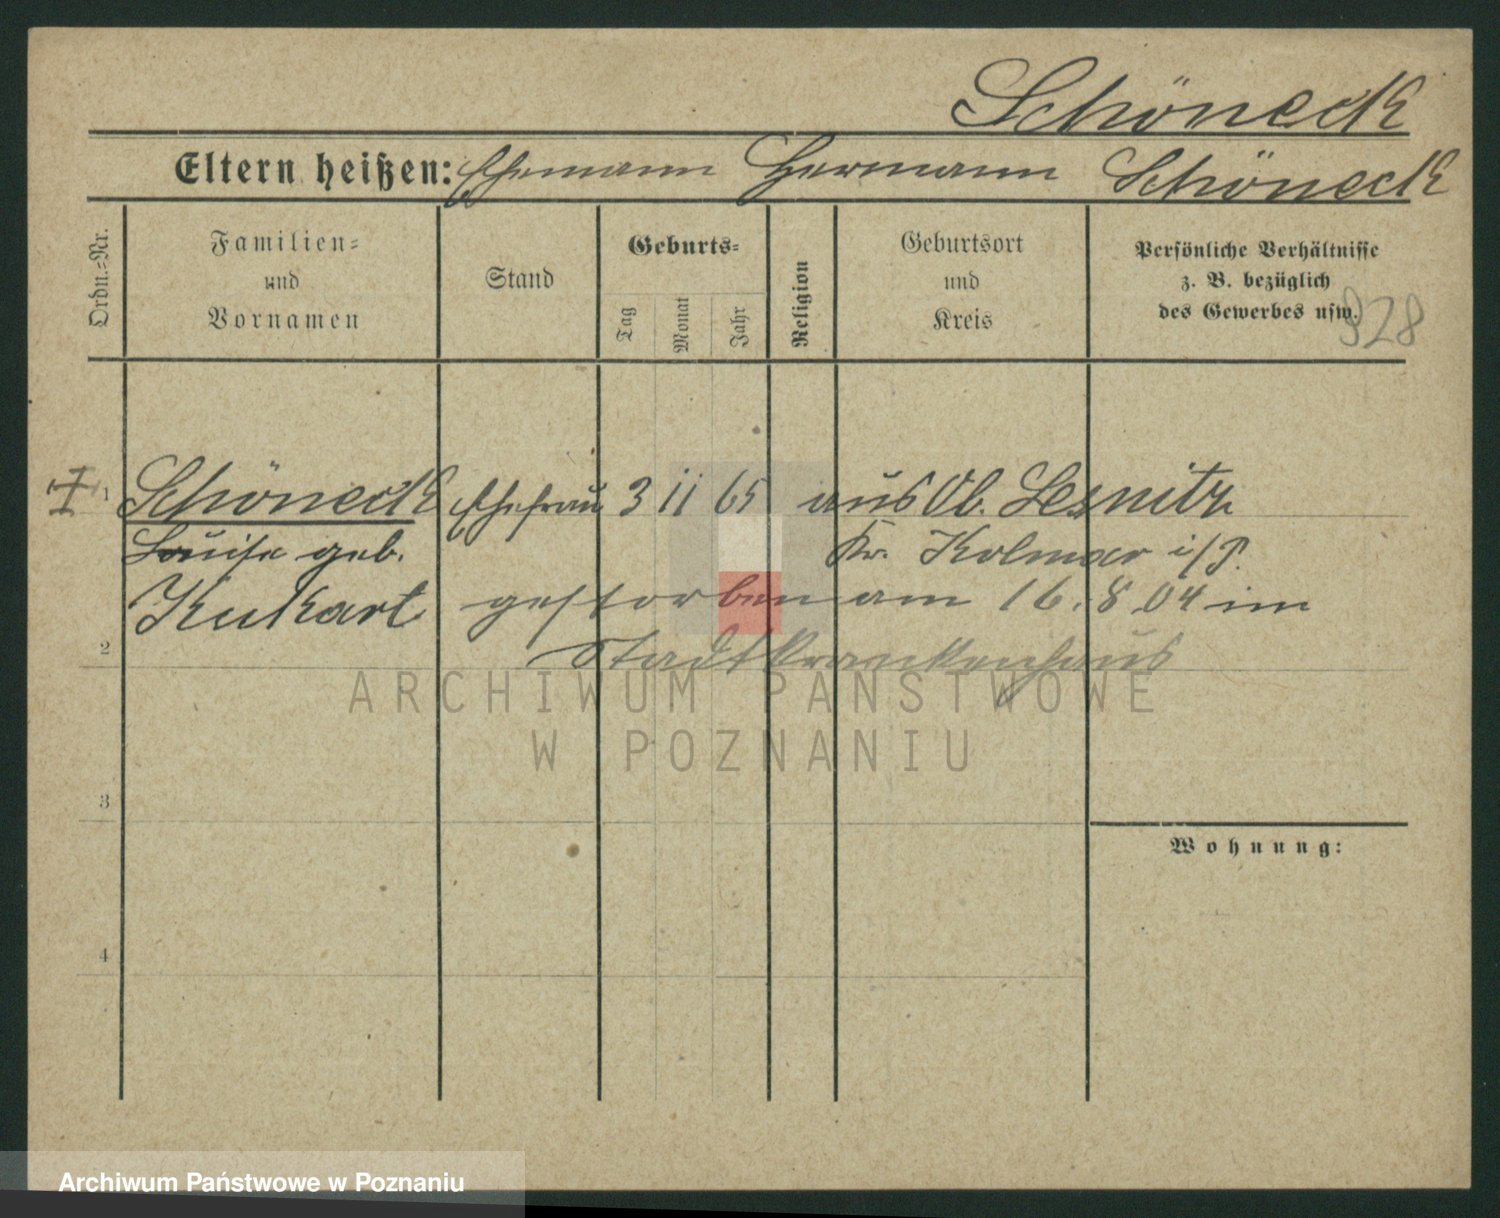 Schöneck
Eltern heißen: Ehemann Hermann Schöneck
Ordn.=Nr.
Familien=
und
Vornamen
Stand
Geburts=
Tag
Monat
Jahr
Religion
Geburtsort
und
Kreis
Persönliche Verhältnisse
z. B. bezüglich
des Gewerbes usw.
928
1 Schöneck Ehefrau 3 11 65 aus Ob. Lesnitz
Louise geb. Kr. Kolmar i/P.
Kukart gestorben am 16.8.04 im
2 Stadtkrankenhaus
ARCHIWUM PAŃSTWOWE
W POZNANIU
3
Wohnung:
4
Archiwum Państwowe w Poznaniu